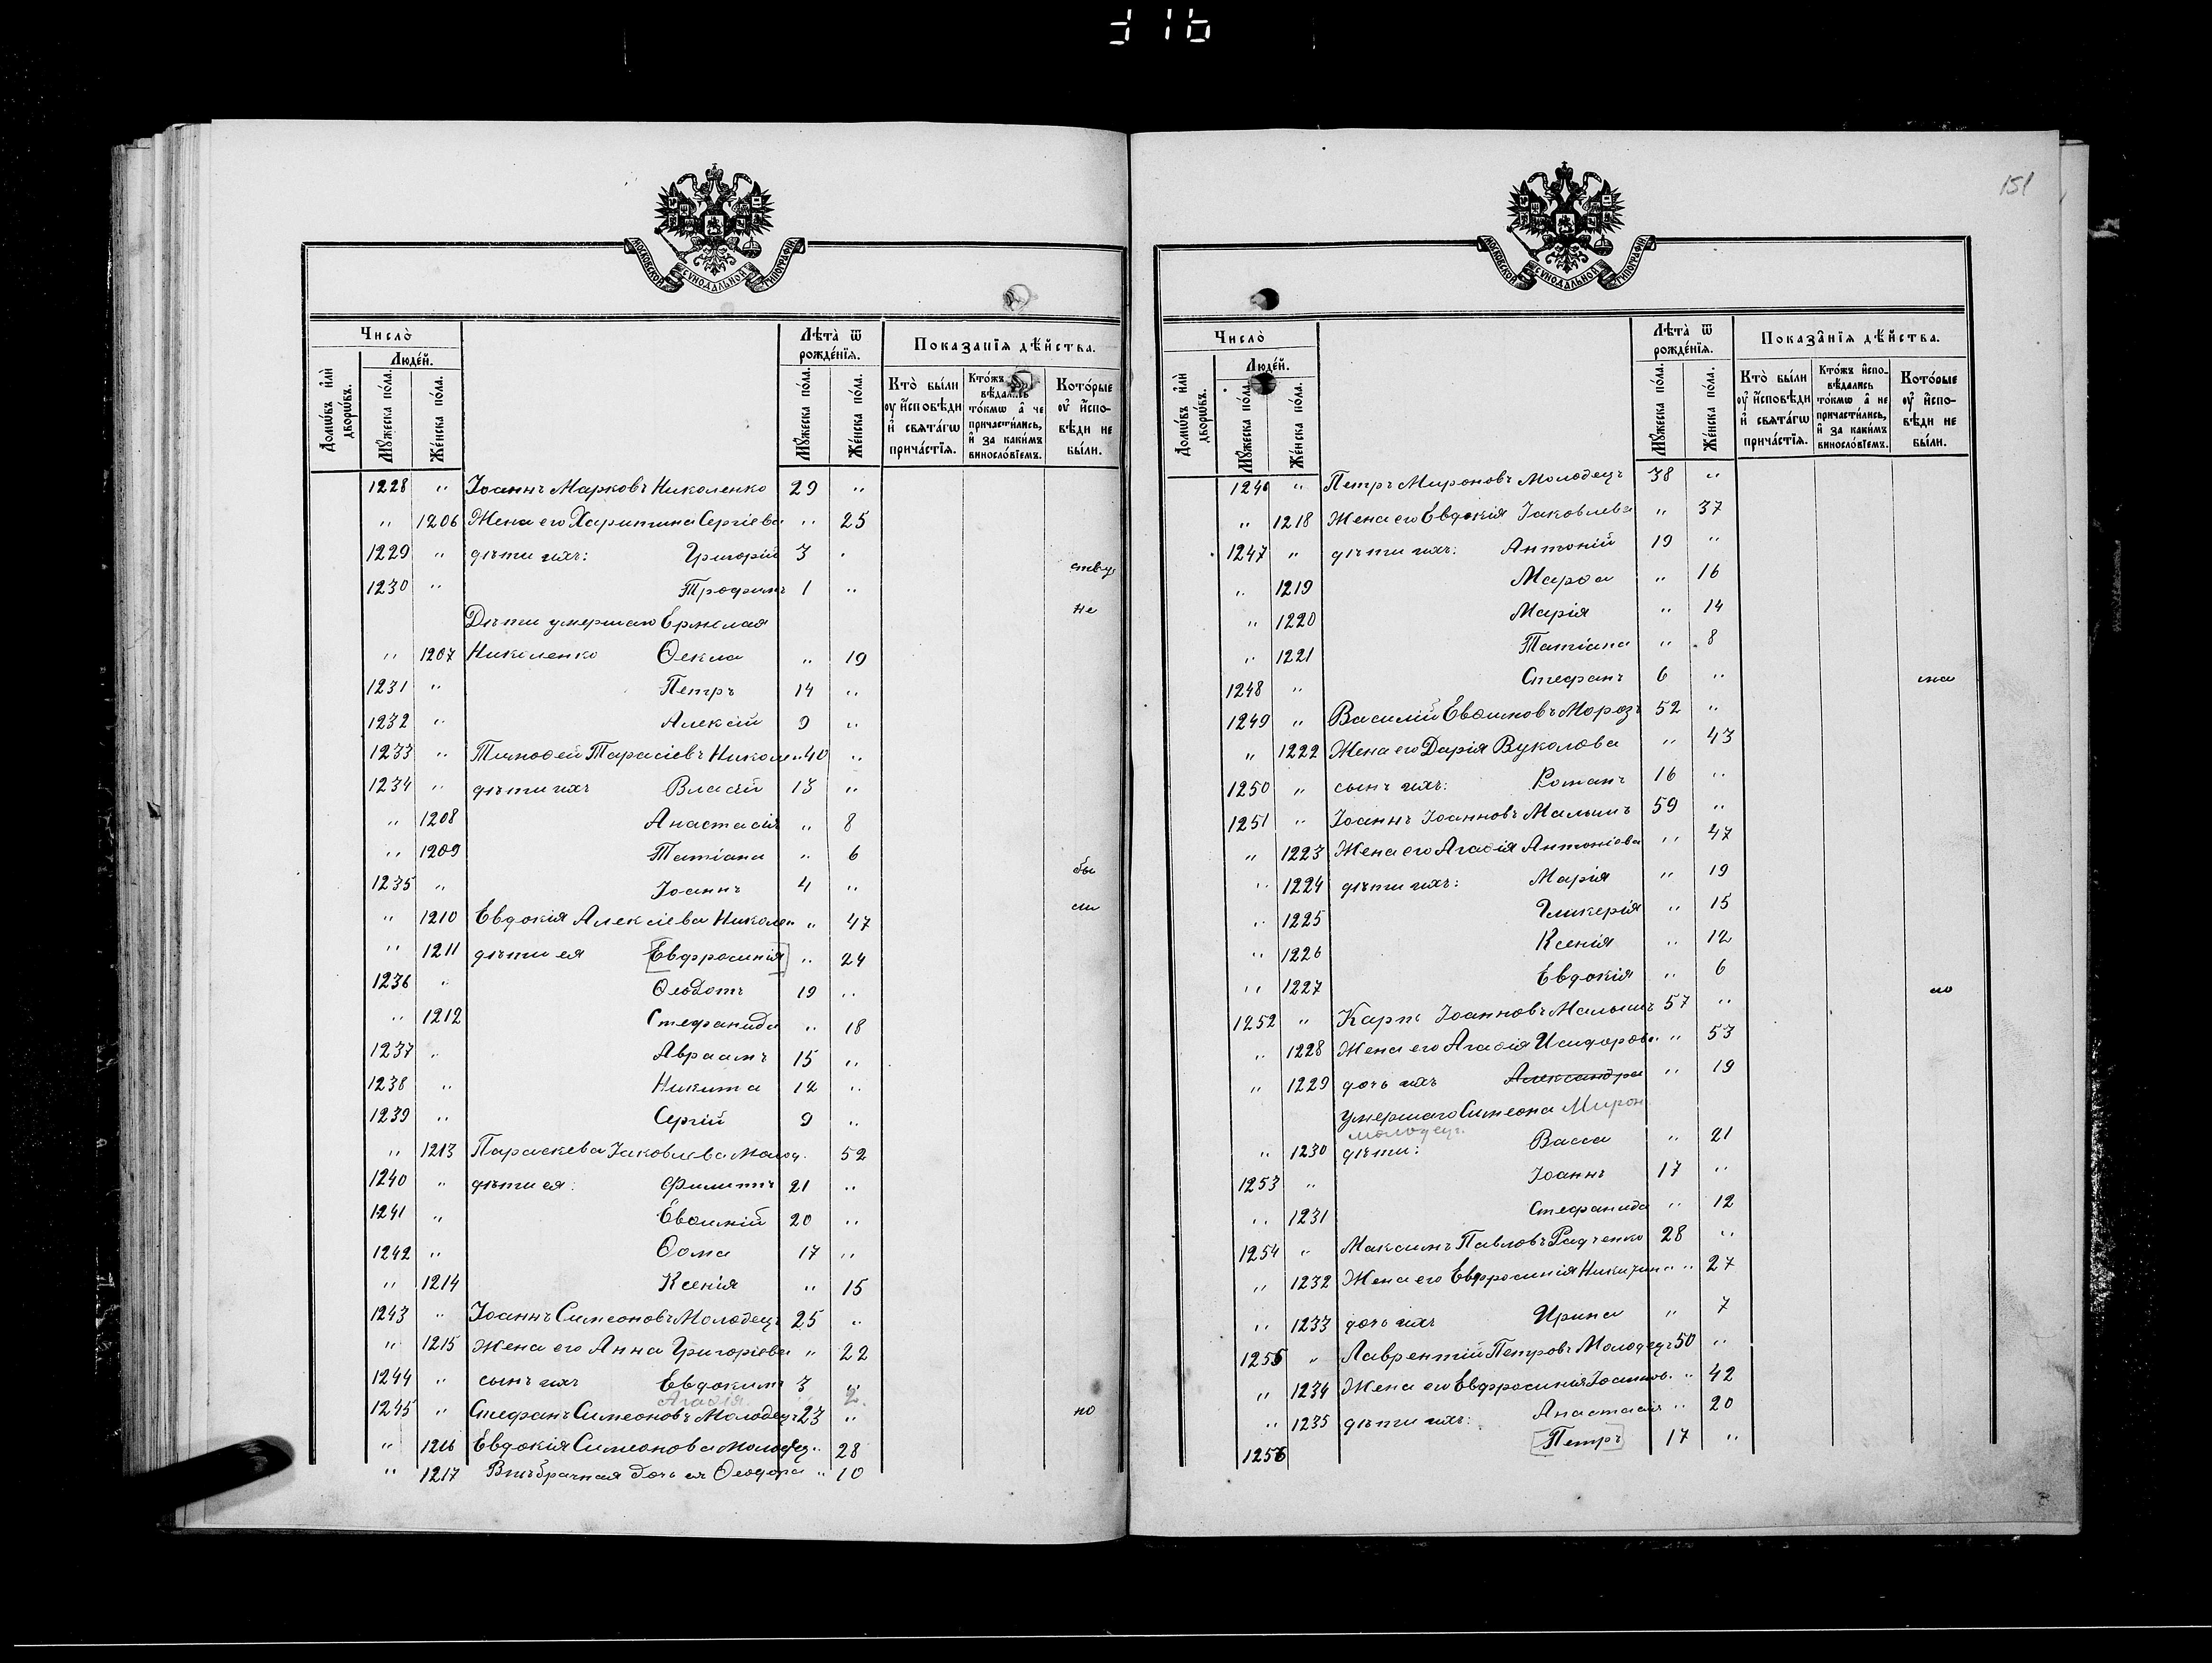 916
МОСКОВСКОЙ СѴНОДАЛЬНОЙ ТИПОГРАФІИ
Число̀
Домѡ́въ и҆лѝ дворѡ́въ.
Люде́й.
Мꙋ́жеска по́ла.
Же́нска по́ла.
Лѣ́та ѿ рожде́нїѧ.
Мꙋ́жеска по́ла.
Же́нска по́ла.
Показа́нїѧ дѣ́йства.
Кто̀ бы́ли ᲂу҆ и҆́сповѣди и҆ свѧта́гѡ прича́стїѧ.
Кто́жъ и҆сповѣдались то́кмѡ а҆ не причасти́лись, и҆ за каки́мъ винослові́емъ.
Кото́рые ᲂу҆ и҆́сповѣди не бы́ли.
1228 " Іоаннъ Марковъ Николенко 29 "
" 1206 Жена его Харитина Сергіева " 25
1229 " дѣти ихъ: Григорій 3 "
ству
1230 " Трофимъ 1 "
не
Дѣти умершаго Ермолая
" 1207 Николенко Ѳекла " 19
1231 " Петръ 14 "
1232 " Алексій 9 "
1233 " Тимоѳей Тарасіевъ Николен 40 "
1234 " дѣти ихъ Власій 13 "
" 1208 Анастасія " 8
" 1209 Татіана " 6
бы
1235 " Іоаннъ 4 "
ли
" 1210 Евдокія Алексіева Николен " 47
" 1211 дѣти ея [Евфросинія] " 24
1236 " Ѳеодотъ 19 "
" 1212 Стефанида " 18
1237 " Авраамъ 15 "
1238 " Никита 12 "
1239 " Сергій 9 "
" 1213 Параскева Іаковлева Молод. 52
1240 " дѣти ея: Филиппъ 21 "
1241 " Евѳимій 20 "
1242 " Ѳома 17 "
" 1214 Ксенія " 15
1243 " Іоаннъ Симеоновъ Молодецъ 25 "
" 1215 Жена его Анна Григоріева " 22
1244 " сынъ ихъ Евдокимъ 3 "
Агаѳія. 2.
1245 " Стефанъ Симеоновъ Молодецъ 23 "
но
" 1216 Евдокія Симеонова Молодец. 28
" 1217 Внѣбрачная дочь ея Ѳеодора " 10
151
МОСКОВСКОЙ СѴНОДАЛЬНОЙ ТИПОГРАФІИ
Число̀
Домѡ́въ и҆лѝ дворѡ́въ.
Люде́й.
Мꙋ́жеска по́ла.
Же́нска по́ла.
Лѣ́та ѿ рожде́нїѧ.
Мꙋ́жеска по́ла.
Же́нска по́ла.
Показа́нїѧ дѣ́йства.
Кто̀ бы́ли ᲂу҆ и҆́сповѣди и҆ свѧта́гѡ прича́стїѧ.
Кто́жъ и҆сповѣдались то́кмѡ а҆ не причасти́лись, и҆ за каки́мъ винослові́емъ.
Кото́рые ᲂу҆ и҆́сповѣди не бы́ли.
1246 " Петръ Мироновъ Молодецъ 38 "
" 1218 Жена его Евдокія Іаковлева " 37
1247 " дѣти ихъ: Антоній 19 "
" 1219 Марѳа " 16
" 1220 Марія " 14
" 1221 Татіана " 8
1248 " Стефанъ 6 "
1249 " Василій Евѳимовъ Морозъ 52 "
" 1222 Жена его Дарія Вуколова " 43
1250 " сынъ ихъ: Романъ 16 "
1251 " Іоаннъ Іоанновъ Малышъ 59 "
" 1223 Жена его Агаѳія Антоніева " 47
" 1224 дѣти ихъ: Марія " 19
" 1225 Гликерія " 15
" 1226 Ксенія " 12
" 1227 Евдокія " 6
1252 " Карпъ Іоанновъ Малышъ 57 "
" 1228 Жена его Агаѳія Исидоров. " 53
" 1229 дочь ихъ Александра " 19
умершаго Симеона Мирон
молодецъ.
" 1230 дѣти: Васса " 21
1253 " Іоаннъ 17 "
" 1231 Стефанида " 12
1254 " Максимъ Павловъ Радченко 28 "
" 1232 Жена его Евфросинія Никитина " 27
" 1233 дочь ихъ Ирина " 7
1255 " Лаврентій Петровъ Молодецъ 50 "
" 1234 Жена его Евфросинія Іоаннов. " 42
" 1235 дѣти ихъ: Анастасія " 20
1256 [Петръ] 17 "